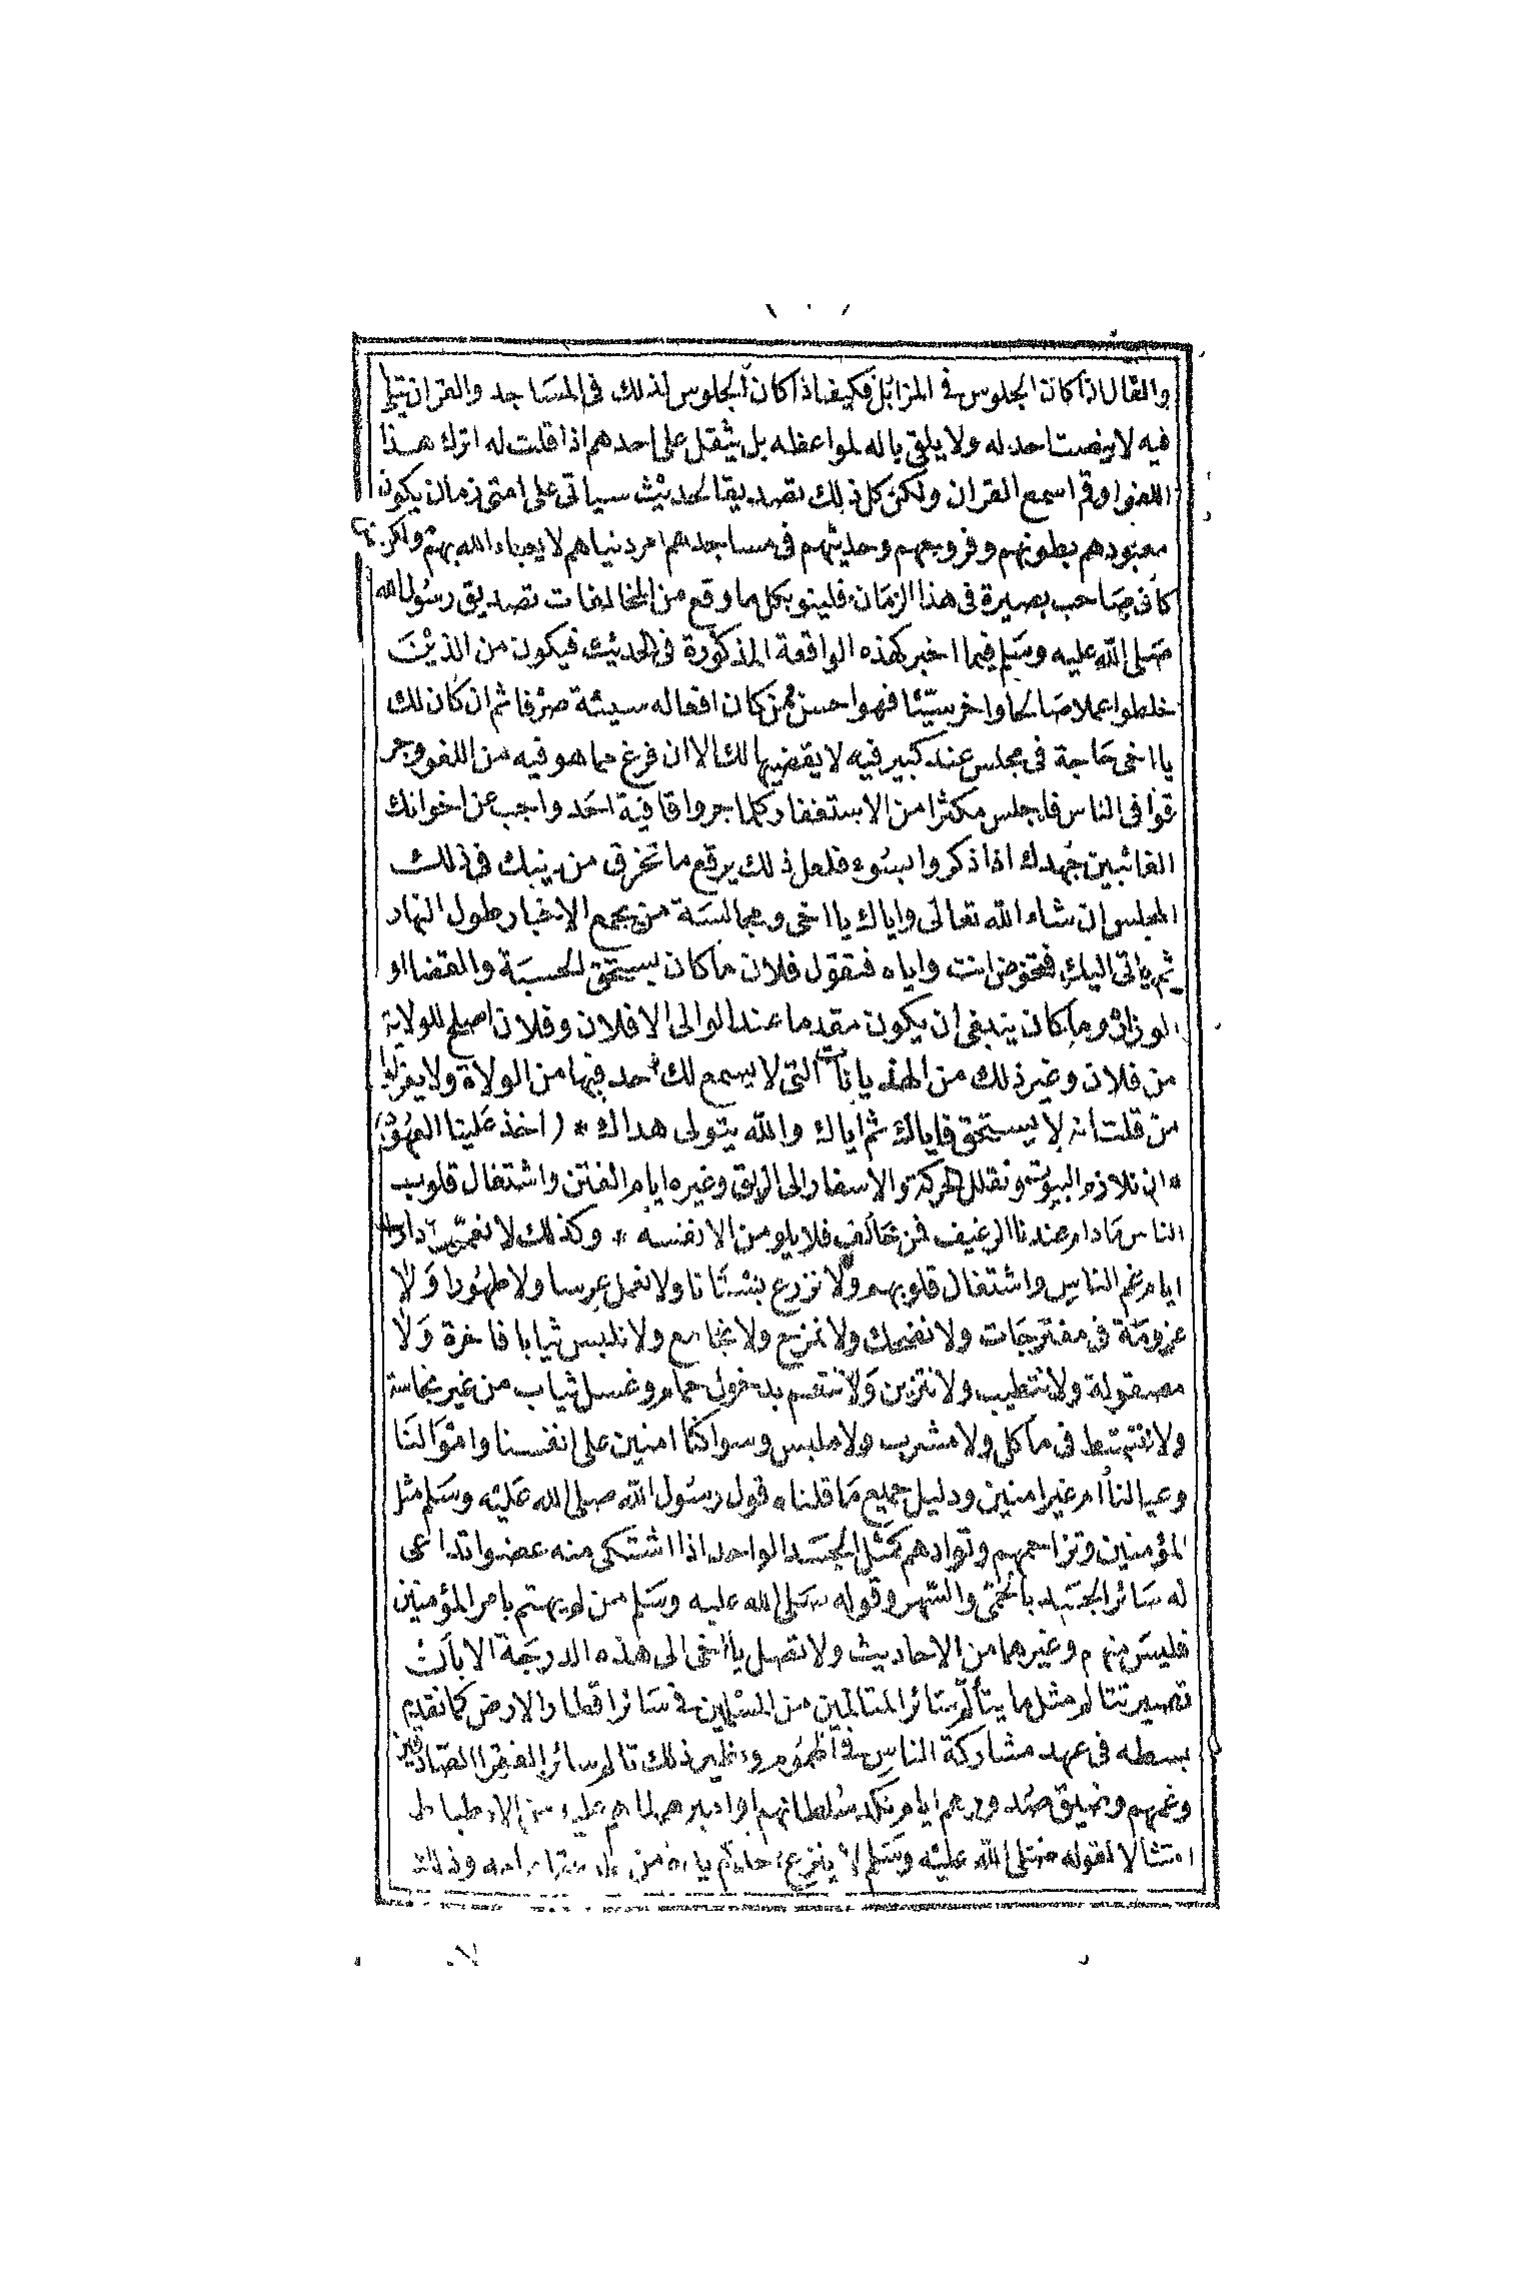 والقال اذا كان الجلوس في المزابل فكيف اذا كان الجلوس لذلك في المساجد والقران يتلى
فيه لا ينصت احد له ولا يلقى باله لمواعظه بل يثقل على احدهم اذا قلت له اترك هذا
اللغو او قم اسمع القران ولكن كل ذلك تصديقا لحديث سياتي على امتي زمان يكون
معبودهم بطونهم وفروجهم وحديثهم في مساجدهم امر دنياهم لا يعباء الله بهم ولكن
كان صاحب بصيرة في هذا الزمان فلينو بكل ما وقع من المخالفات تصديق رسول الله
صلى الله عليه وسلم فيما اخبر كهذه الواقعة المذكورة في الحديث فيكون من الذين
خلطوا عملا صالحا واخر سيئا فهو احسن ممن كان افعاله سيئة صرفا ثم ان كان لك
يا اخي حاجة في مجلس عند كبير فيه لا يقضيها لك الا ان فرغ مما هو فيه من اللغو وجر
قوا في الناس فاجلس مكثرا من الاستغفار كلما جروا قافية احد واجب عن اخوانك
الغائبين جهدك اذا ذكروا بسوء فلعل ذلك يرقع ما تخرق من دينك في ذلك
المجلس ان شاء الله تعالى واياك يا اخي ومجالسة من يجمع الاخبار طول النهار
ثم ياتي اليك فتخوض انت واياه فتقول فلان ما كان يستحق الحسبة والقضا او
الوزارة وما كان ينبغي ان يكون مقدما عند الوالي الا فلان وفلان اصلح للولاية
من فلان وغير ذلك من الهذيانات التي لا يسمع لك احد فيها من الولاة ولا يعزلوا
من قلت انه لا يستحق فاياك ثم اياك والله يتولى هداك * ( اخذ علينا العهود
* ان نلازم البيوت ونقلل الحركة والاسفار الى الريق وغيره ايام الفتن واشتغال قلوب
الناس ما دام عندنا الرغيف فمن خالف فلا يلومن الا نفسه * وكذلك لا نعمر دارا
ايام غم الناس واشتغال قلوبهم ولا نزرع بستانا ولا نعمل عرسا ولا طهورا ولا
عزومة في مفترجات ولا نضحك ولا نمزح ولا نجامع ولا نلبس ثيابا فاخرة ولا
مصقولة ولا نتطيب ولا نتزين ولا نتنعم بدخول حمام وغسل ثياب من غير نجاسة
ولا في ماكل ولا مشرب ولا ملبس وسوا كنا امنين على انفسنا واموالنا
وعيالنا ام غير امنين ودليل جميع ما قلناه قول رسول الله صلى الله عليه وسلم مثل
المؤمنين وتراحمهم وتوادهم كمثل الجسد الواحد اذا اشتكى منه عضوا تداعى
له سائر الجسد بالحمى والسهر وقوله صلى الله عليه وسلم من لم يهتم بامر المؤمنين
فليس منهم وغيرهما من الاحاديث ولا تصل يا اخي الى هذه الدرجة الا بان
تصير تتالم مثل ما يتالم سائر المتالمين من المسلمين في سائر اقطار الارض كما تقدم
بسطه في عهد مشاركة الناس في همومهم ونظير ذلك تالم سائر الفقرا الصادقين
وغمهم وضيق صدورهم ايام نكد سلطانهم او اميرهم لما هم عليه من الارتباط
امتثالا لقوله صلى الله عليه وسلم لا ينزع احدكم يده من وذلك